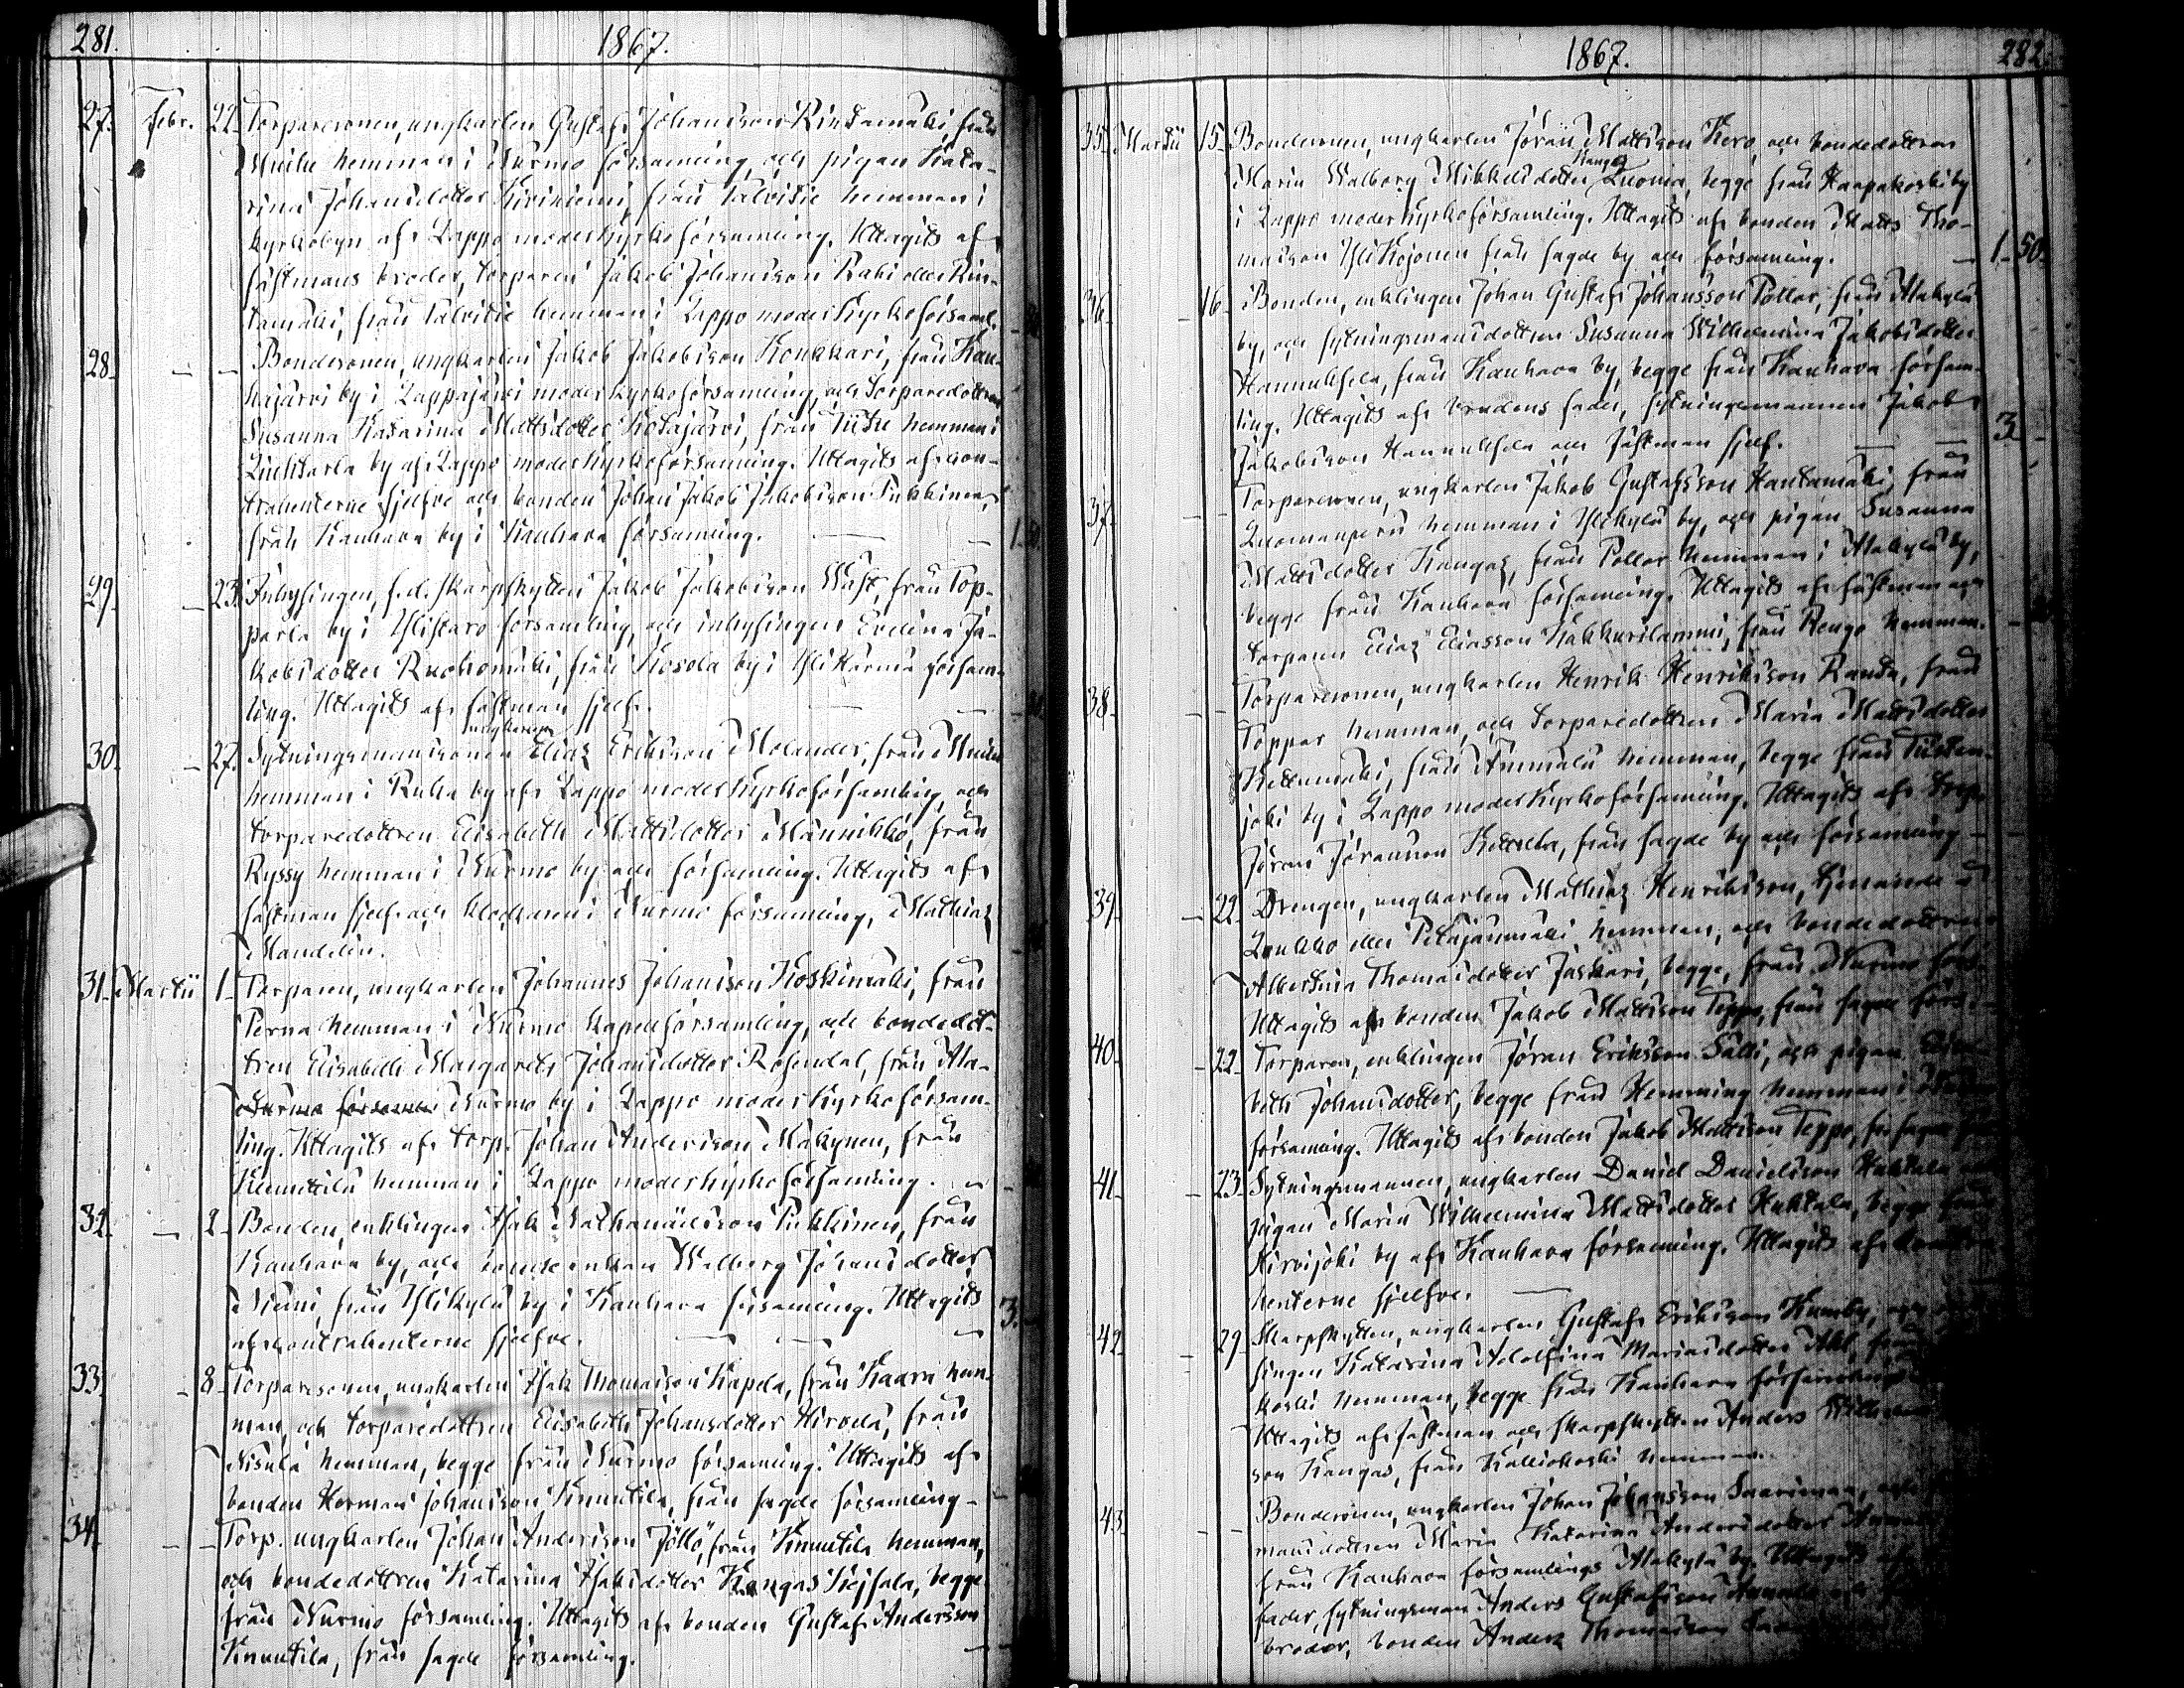 281. 1867.
27. Febr. 22. Torparesonen, ungkarlen Gustaf Johansson Rintamäki, från
hemman i Nurmo församling, och pigan Kata-
rina Johansdotter Kiviniemi, från Talvitie hemman i
Kyrkobyn af Lappo moderkyrkoförsamling. Uttagits af
fästmans broder, torparen Jakob Johansson Raki eller Rin-
tamäki, från Talvitie hemman i Lappo moderkyrkoförsaml.
28. — — Bondesonen, ungkarlen Jakob Jakobsson Konkkari, från Kau-
hajärvi by i Lappajärvi moderkyrkoförsamling, och torparedottren
Susanna Katarina Mattsdotter Kotajärvi, från hemman i
Liuhtarla by af Lappo moderkyrkoförsamling. Uttagits af con-
trahenterne sjelfve och bonden Johan Jakob Jakobsson Pukkinen,
från Kauhava by i Kauhava församling. — — 1. 50.
29. — 23. Inhysingen, f.d. skarpskytten Jakob Jakobsson Wast, från Top-
parla by i Ylistaro församling, och inhysingen Evelina Ja-
kobsdotter Ruohomäki, från Kosola by i Ylikärmä försam-
ling. Uttagits af fästman sjelf. — —
ungkarlen
30. — 27. Sytningsmanssonen Elias Eriksson Molander, från
hemman i Ruha by af Lappo moderkyrkoförsamling, och
torparedottren Elisabeth Mattsdotter Männikkö, från
Ryssy hemman i Nurmo by och församling. Uttagits af
fästman sjelf och klockaren i Nurmo församling, Mathias
Mandelin.
31. Martii 1. Torparen, ungkarlen Johannes Johansson Koskimäki, från
Perna hemman i Nurmo kapellförsamling, och bondedot-
tren Elisabeth Margareta Johansdotter Rosendal, från Ala-
Nurmo församl Nurmo by i Lappo moderkyrkoförsam-
ling. Uttagits af torp. Johan Andersson Mäkynen, från
Knuuttila hemman i Lappo moderkyrkoförsamling. —
32. — 2. Bonden, enklingen Isak Nathanaelsson Pukkinen, från
Kauhava by, och bondeenkan Walborg Johansdotter
Niemi, från Ylikylä by i Kauhava församling. Uttagits
af contrahenterne sjelfve. — — — 3. —
33. — 8. Torparesonen, ungkarlen Isak Thomasson Kapela, från Kaara hem-
man, och torparedottren Elisabeth Johansdotter Hirvelä, från
Nisula hemman, begge från Nurmo församling. Uttagits af
bonden Herman Johansson Knuutila, från sagde församling —
34. — — Torp. ungkarlen Johan Andersson Jöllö, från Knuutila hemman,
och bondedottren Katarina Isaksdotter Kangas Keisala, begge
från Nurmo församling. Uttagits af bonden Gustaf Andersson
Knuutila, från sagde församling. —
1867. 282.
35. Martii 15. Bondesonen, ungkarlen Jöran Mattsson Kero, och bondedottren
Kangas
Maria Walborg Mikkelsdotter Luoma, begge från Haapakoski by
i Lappo moderkyrkoförsamling. Uttagits af bonden Matts Tho-
masson Yli Kojonen från sagde by och församling. — 1. 50.
36. — 16. Bonden, enklingen Johan Gustaf Johansson Pollar, från Alakylä
by, och sytningsmansdottren Susanna Wilhelmina Jakobsdotter
Hannuksela, från Kauhava by, begge från Kauhava försam-
ling. Uttagits af brudens fader, sytningsmannen Jakob
Jakobsson Hannuksela och fästman sjelf. — — 3. —
37. — — Torparesonen, ungkarlen Jakob Gustafsson Hautamäki, från
Luomanperä hemman i Ylikylä by, och pigan Susanna
Mattsdotter Kangas, från Pollar hemman i Alakylä by,
begge från Kauhava församling. Uttagits af fästman och
torparen Elias Eliasson Kakkurilammi, från Rengo hemman.
38. — — Torparesonen, ungkarlen Henrik Henriksson Ranta, från
Toppar hemman, och torparedottren Maria Mattsdotter
Ketunmäki, från Ammälä hemman, begge från Tiisten-
joki by i Lappo moderkyrkoförsamling. Uttagits af torp.
Jöran Jöransson Kettula, från sagde by och församling —
39. — 22. Drengen, ungkarlen Mathias Henriksson, tjenande å
Loukko eller Petäjänmäki hemman, och bondedottren
Albertina Thomasdotter Jaskari, begge från Nurmo förs.
Uttagits af bonden Jakob Mattsson Teppo, från sagde förs.
40. — 22. Torparen, enklingen Jöran Eriksson Sälli, och pigan
beth Johansdotter, begge från Hemming hemman i
församling. Uttagits af bonden Jakob Mattsson Teppo, fr. sagde
41. — 23. Sytningsmannen, ungkarlen Daniel Danielsson Huhtala
pigan Maria Wilhelmina Mattsdotter Huhtala, begge från
Hirvijoki by af Kauhava församling. Uttagits af
henterne sjelfve. —
42. — 29. Skarpskytten, ungkarlen Gustaf Eriksson
singen Katarina Adolfina Mariasdotter Ahl,
koski hemman, begge från Kauhava församling
Uttagits af fästman och skarpskytten Anders
son Kangas, från Kalliokoski hemman.
43. — — Bondesonen, ungkarlen Johan Johansson Saarimaa,
mansdottren Maria Katarina Andersdotter
från Kauhava församlings Alakylä by. Uttagits af
fader, sytningsman Anders Gustafsson
broder, bonden Anders Thomasson